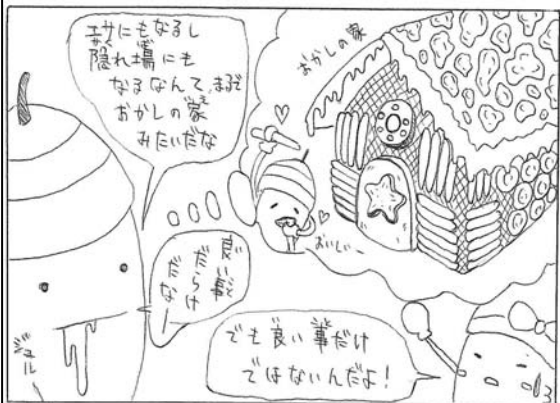 エサにもなるし
隠れ場にも
なるなんて、まるで
おかしの家
みたいだな
おかしの家
おいしー
良い事
だらけ
だな
でも良い事だけ
ではないんだよ!
ジュルー